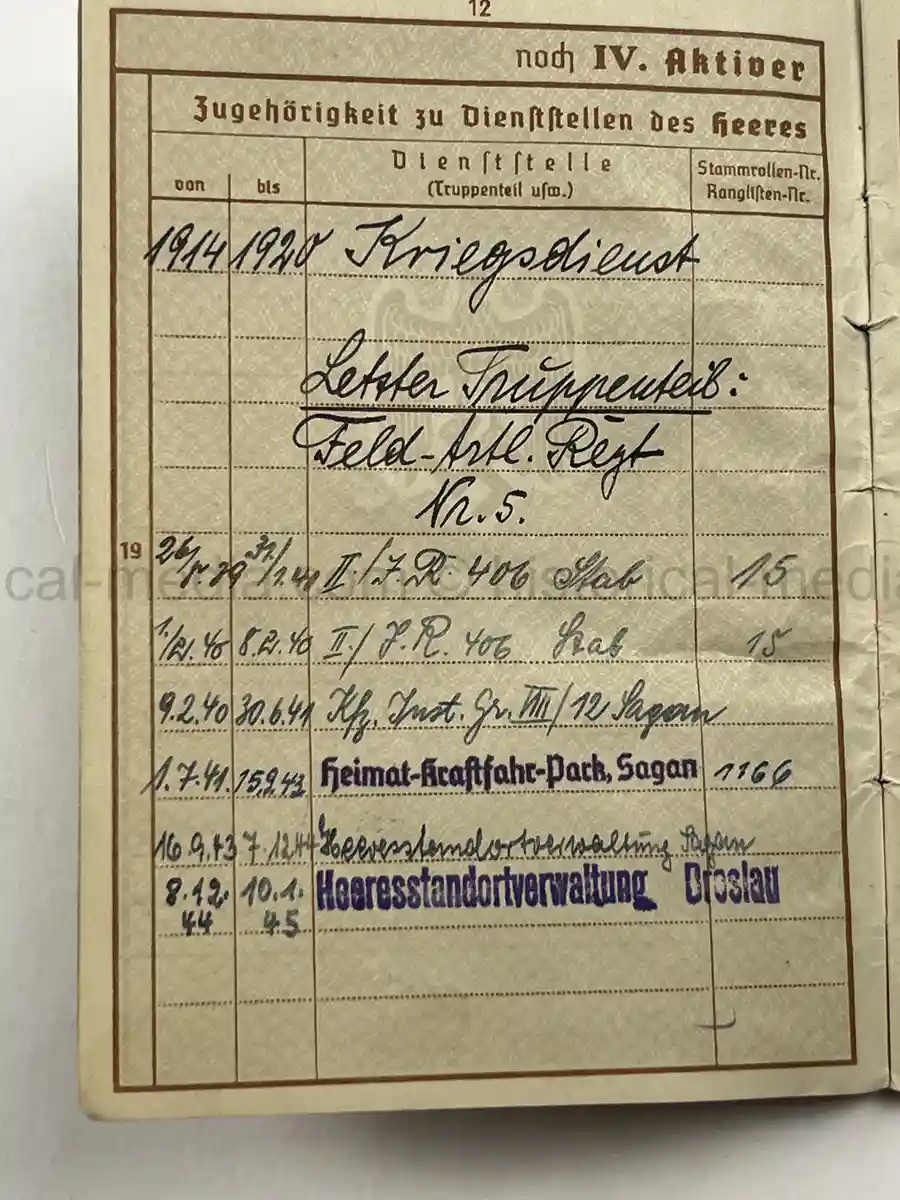 12
noch IV. Aktiver
Zugehörigkeit zu Dienststellen des Heeres
von bis Dienststelle (Truppenteil usw.) Stammrollen-Nr. Ranglisten-Nr.
1914 1920 Kriegsdienst
Letzter Truppenteil:
Feld-Artl. Regt
Nr. 5.
19 26/8.39 31/1.40 II./J.R. 406 Stab 15
1./2.40 8.2.40 II/ J.R. 406 Stab 15
9.2.40 30.6.41 Kfz. Inst. Gr. VIII/12 Sagan
1.7.41. 15.9.43 Heimat-Kraftfahr-Park, Sagan 1166
16.9.43 7.12.44 Heeresstandortverwaltung Sagan
8.12.44 10.1.45 Heeresstandortverwaltung Breslau
cal-media.com © historical-media